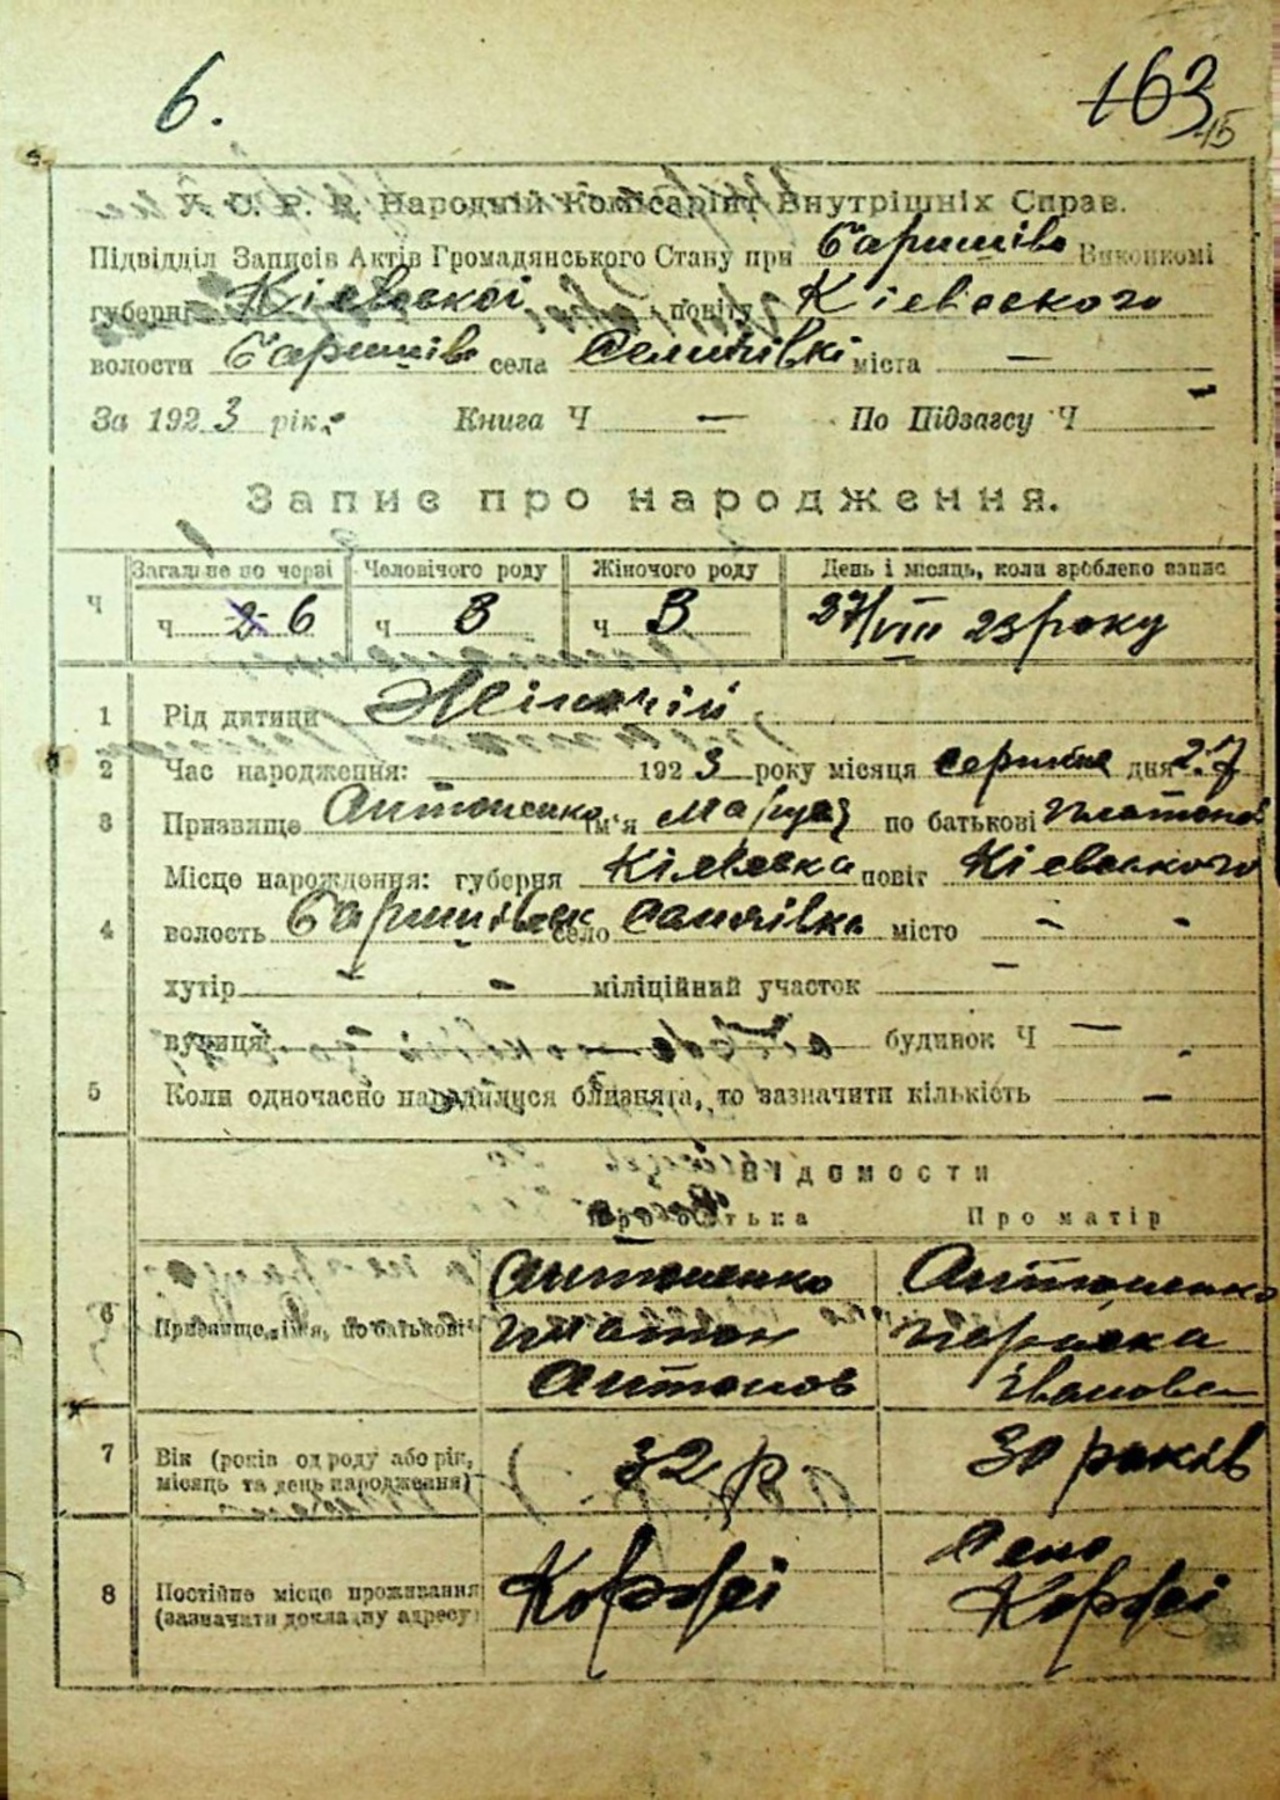 6.
163
15
У. С. Р. Р. Народній Комісаріят Внутрішніх Справ.
Підвідділ Записів Актів Громадянського Стану при Баришів Виконкомі
губерні Кіевської повіту Кіевского
волости Баришів села Селичівкі міста —
За 1923 рік. Книга Ч — По Підзагсу Ч —
Запис про народження.
Загальне по черзі Человічого роду Жіночого роду День і місяць, коли зроблено запис
Ч ч 6 ч 3 ч 3 27/VIII 23 року
1 Рід дитини Жіночій
2 Час народження: 1923 року місяця серпня дня 27
3 Призвище Антоненко ім'я по батькові Платонов
Місце народження: губерня Кіевська повіт Кіевского
4 волость Баришівськ село Селичівка місто - -
хутір - - міліційний участок —
вулиця будинок Ч —
5 Коли одночасно народилися близнята, то зазначити кількість —
Відомости
Про батька Про матір
Антоненко Антоненко
6 Призвище, ім'я, по батькові Платон Параска
Антонов Іванова
7 Вік (років од роду або рік, 32 р. 30 років
місяць та день народження)
Село
8 Постійне місце проживання Коржі Коржі
(зазначити докладну адресу)